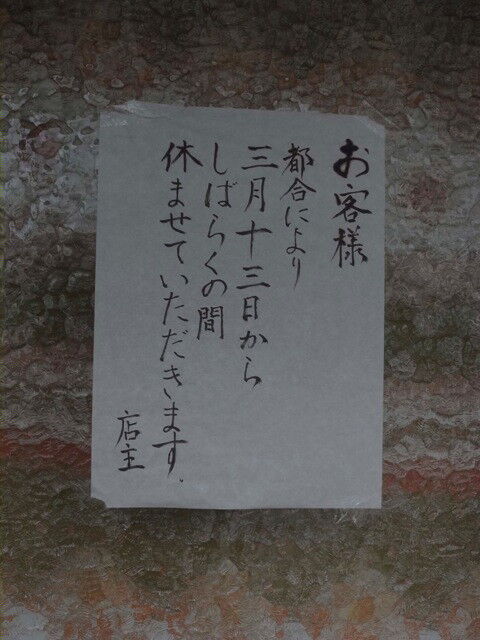 お客様
都合により
三月十三日から
しばらくの間
休ませていただきます.
店主